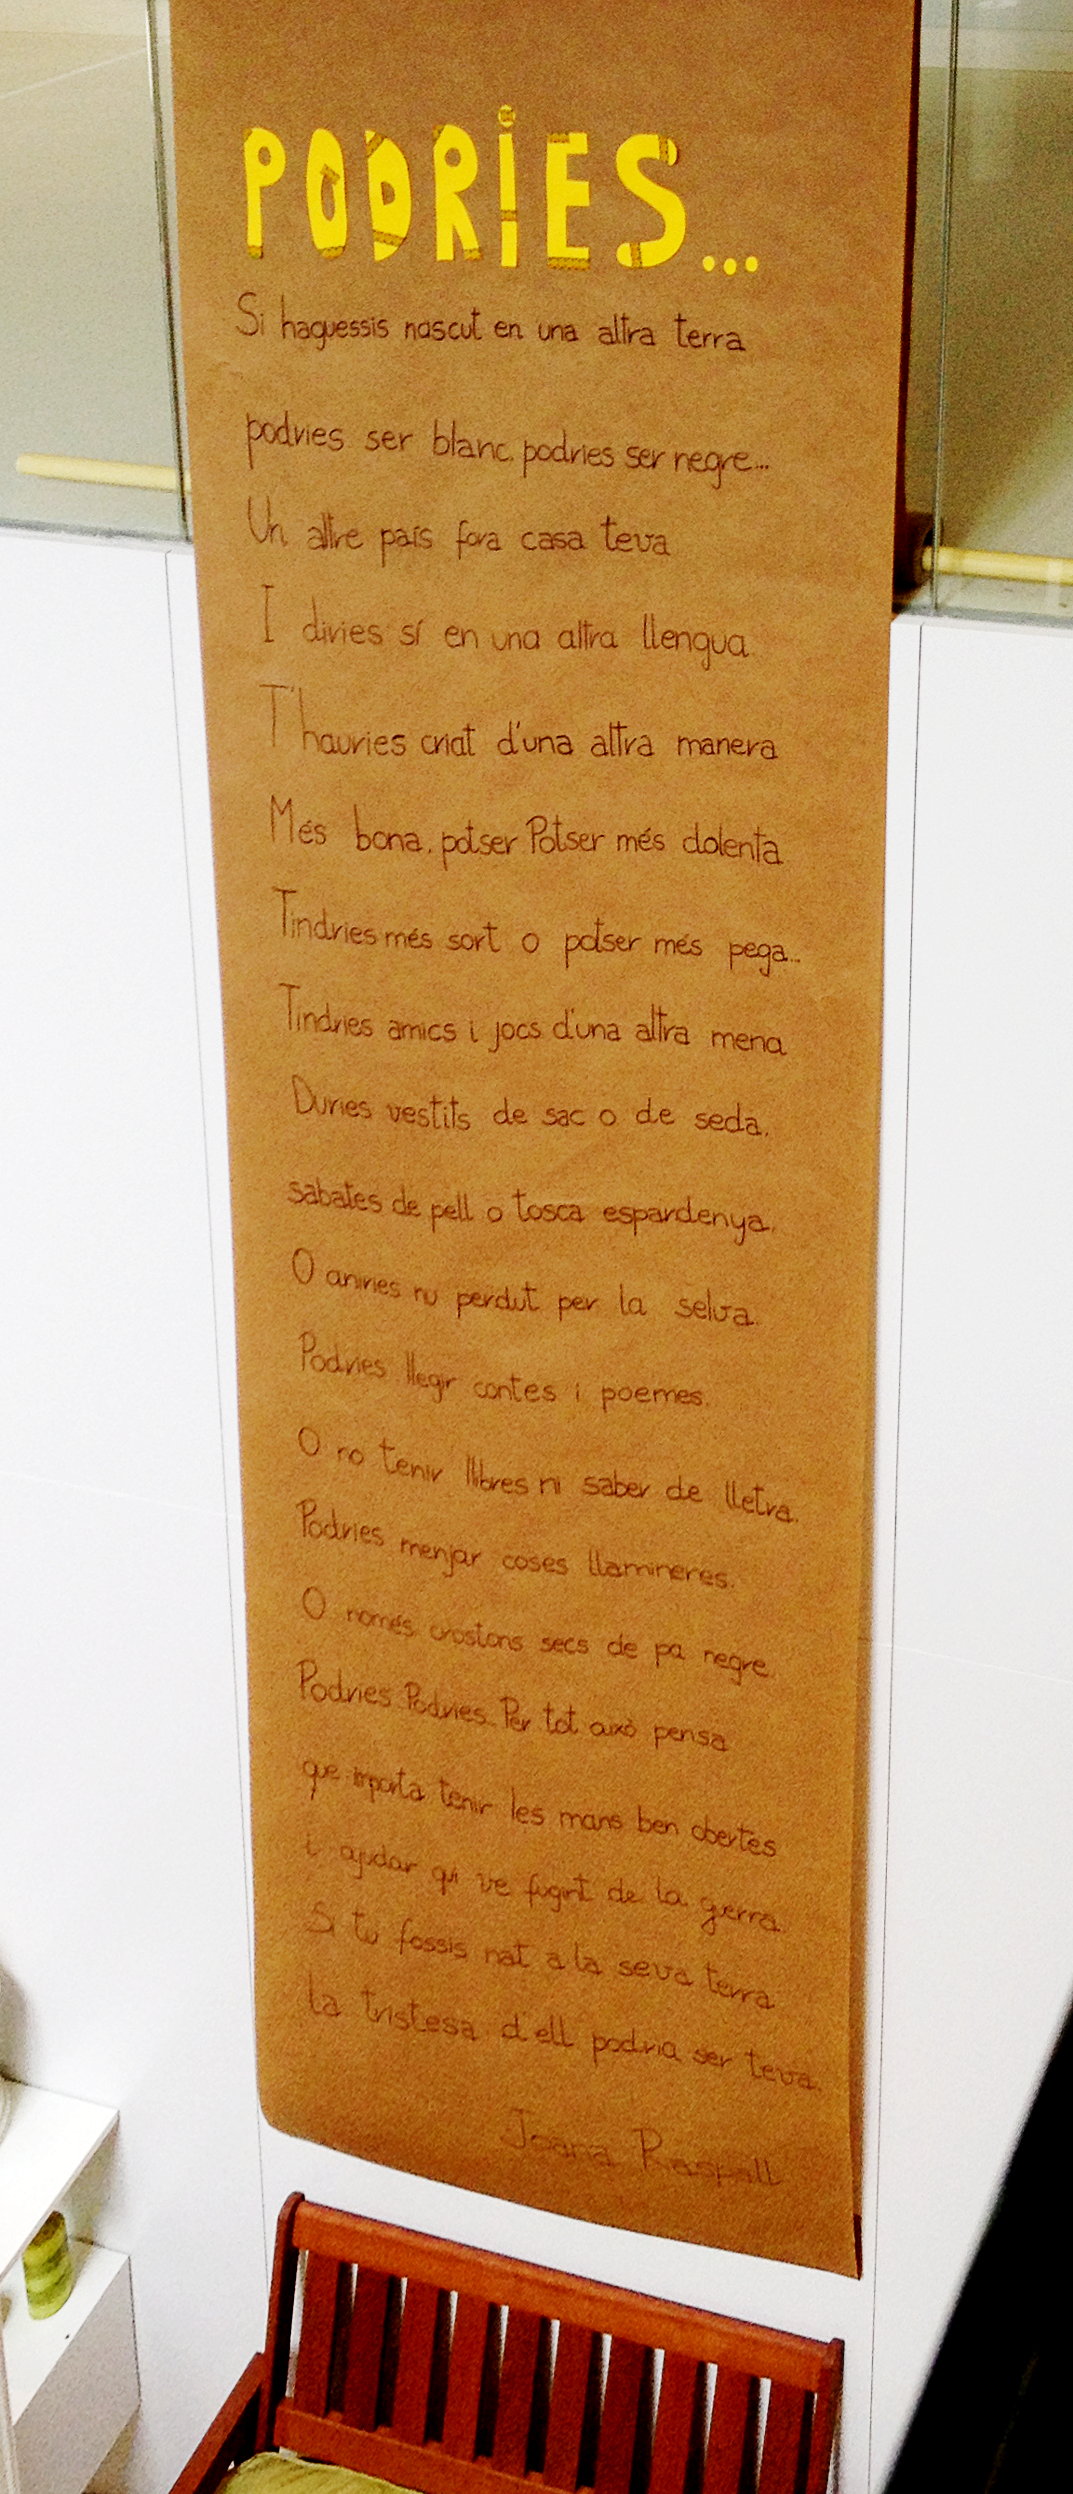 PODRiES...
Si haguessis nascut en una altra terra
podries ser blanc, podries ser negre...
Un altre país fora casa teva
I diries sí en una altra llengua.
T'hauries criat d'una altra manera
Més bona, potser Potser més dolenta
Tindries més sort o potser més pega...
Tindries amics i jocs d'una altra mena
Duries vestits de sac o de seda,
sabates de pell o tosca espardenya,
O aniries nu perdut per la selva.
Podries llegir contes i poemes.
O no tenir llibres ni saber de lletra.
Podries menjar coses llamineres.
O només crostons secs de pa negre
Podries... Podries... Per tot això pensa
que importa tenir les mans ben obertes
i ajudar qui ve fugint de la gerra
Si tu fossis nat a la seva terra
la tristesa d'ell podria ser teva.
Joana Raspall